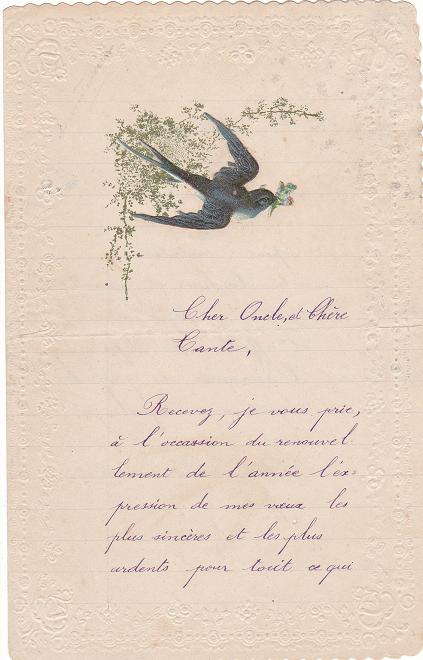 Cher Oncle, et Chère
Tante,
Recevez, je vous prie,
à l'occassion du renouvel
lement de l'année l'ex=
pression de mes vœux les
plus sincères et les plus
ardents pour tout ce qui